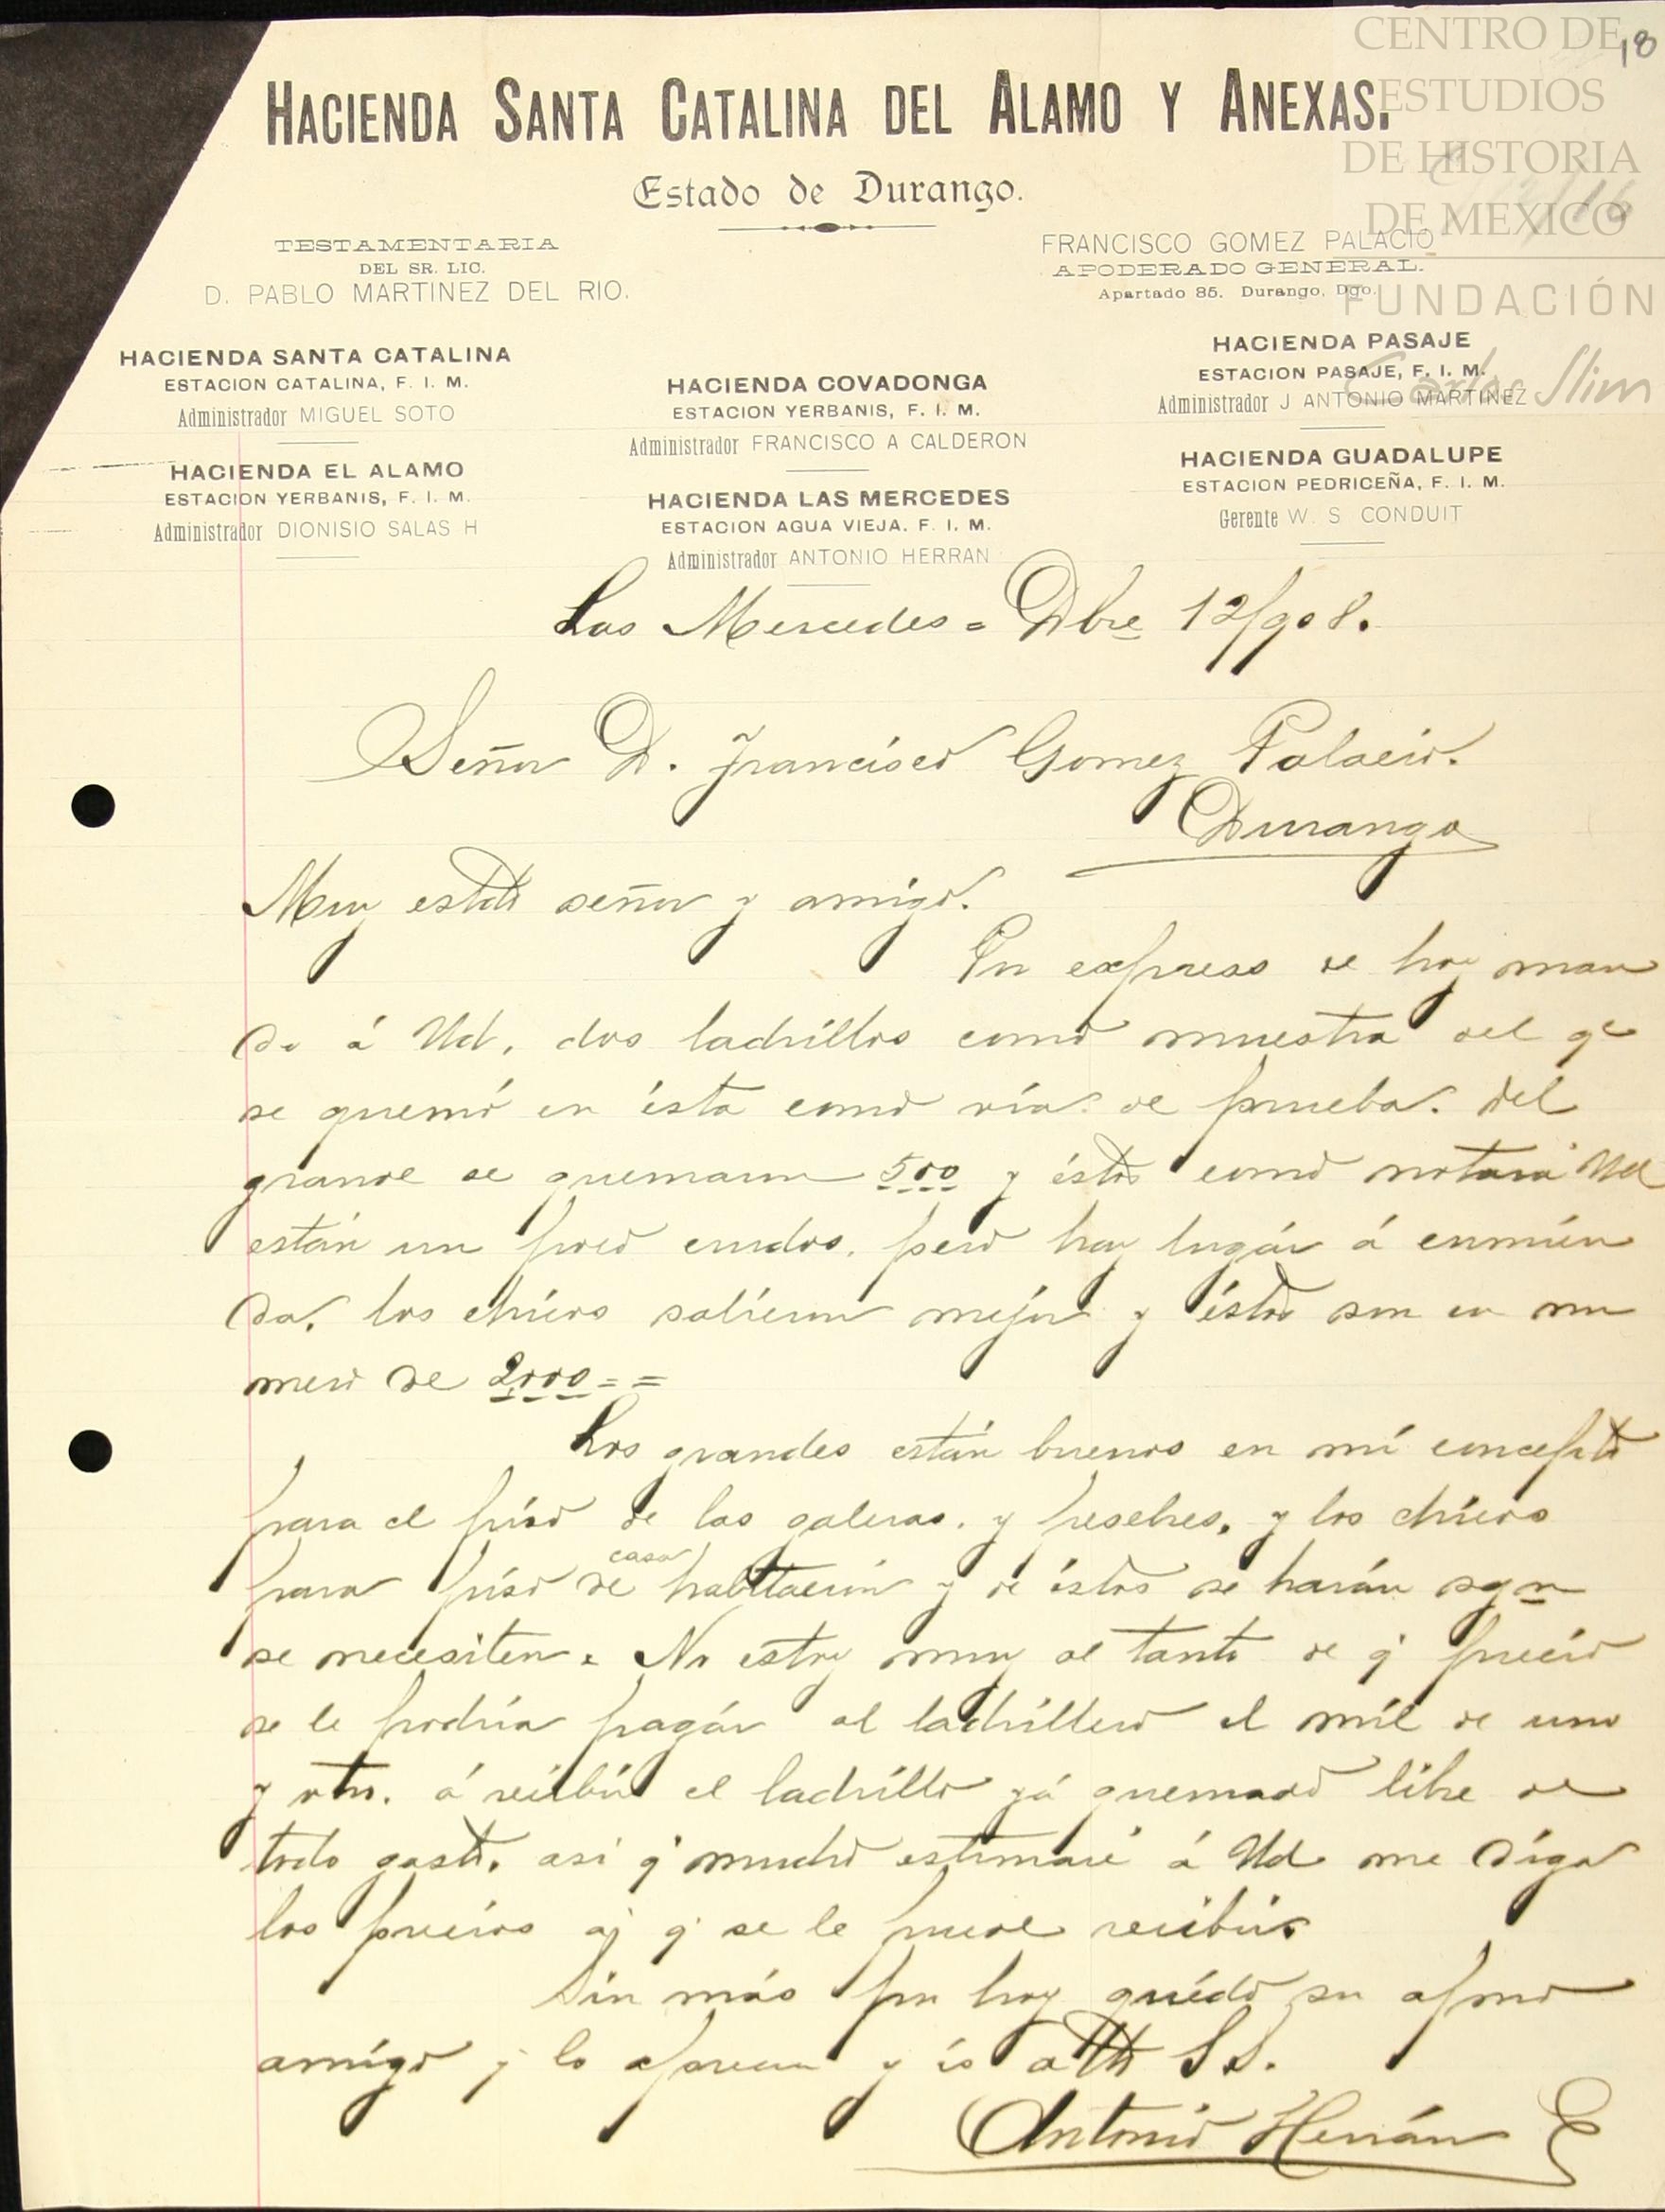 CENTRO DE
ESTUDIOS
DE HISTORIA
DE MEXICO
FUNDACIÓN
Carlos Slim
18
HACIENDA SANTA CATALINA DEL ALAMO Y ANEXAS.
Estado de Durango.
TESTAMENTARIA
DEL SR. LIC.
D. PABLO MARTINEZ DEL RIO.
FRANCISCO GOMEZ PALACIO
APODERADO GENERAL.
Apartado 85. Durango, Dgo.
HACIENDA SANTA CATALINA
ESTACION CATALINA, F. I. M.
Administrador MIGUEL SOTO
HACIENDA EL ALAMO
ESTACION YERBANIS, F. I. M.
Administrador DIONISIO SALAS H
HACIENDA COVADONGA
ESTACION YERBANIS, F. I. M.
Administrador FRANCISCO A CALDERON
HACIENDA LAS MERCEDES
ESTACION AGUA VIEJA. F. I. M.
Administrador ANTONIO HERRAN
HACIENDA PASAJE
ESTACION PASAJE, F. I. M.
Administrador J ANTONIO MARTINEZ
HACIENDA GUADALUPE
ESTACION PEDRICEÑA, F. I. M.
Gerente W. S. CONDUIT
Las Mercedes = Dbre 12/908.
Señor D. Francisco Gomez Palacio.
Durango
Muy estdo señor y amigo.
Por expreso de hoy man
do á Ud. dos ladrillos como muestra del qe
se quemó en ésta como vía de prueba. Del
grande se quemaron 500 y éstos como notará Ud
están un poco crudos, pero hay lugár á enmién
da. los chicos salieron mejor y éstos son en nu
mero de 2000 = =
Los grandes están buenos en mí concepto
para el piso de las galeras. y pesebres, y los chicos
para piso de casa habitación y de éstos se harán sgn
se necesiten. No estoy muy al tanto de q' precio
se le podría pagár al ladrillero el mil de uno
y otro. á recibír el ladrillo yá quemado libre de
todo gasto. asi q' mucho estimaré á Ud me diga
los precios aj q' se le puede recibír.
Sin más por hoy quédo su afmo
amígo y lo aprecia y és atto S S.
Antonio Herrán E